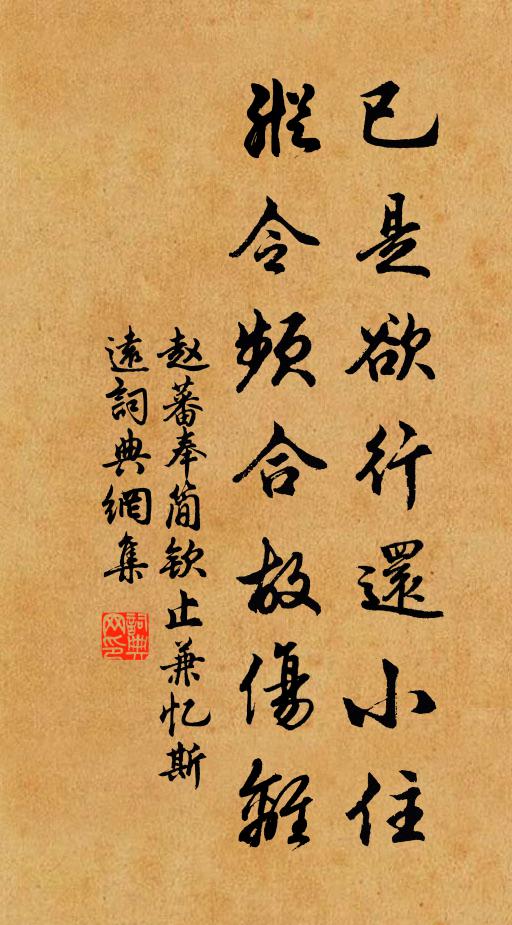 已是欲行還小住
縱令頻合故傷離
赵蕃奉简欽止兼忆斯
遠詞典網集
詞典
网印